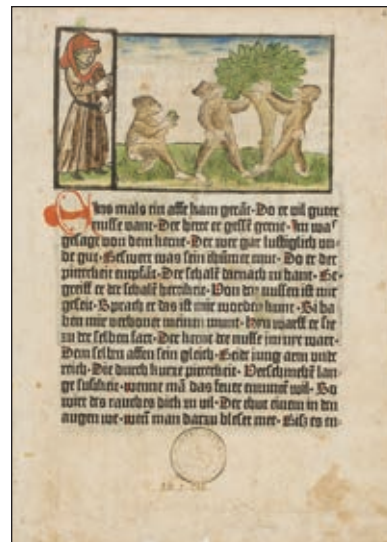 Ins mals ein affe kam gerāt · Do er vil guter
nusse vant · Der hette er gessē gerne · Im waʳ
gesagt von dem kerne · Der wer gar lustiglich vn-
de gut · Beswert was sein thumer mut · Do er der
pitterkeit empfāt · Der schalē darnach zu hant · Be-
greiff er der schalē hertikeit · Von den nussen ist mir
geseit · Sprach er das ist mir worden kunt · Si ha-
ben mir verhonet meinen munt · Hyn warff er sie
zu der selben fart · Der kerne der nusse im nye wart ·
Dem selben affen sein gleich · Beide jung arm vnde
reich · Die durch kurtze pitterkeit · Verschmehē lan-
ge sussikeit · wenne mā das feuer enzunten wil · So
wirt des rauches dick zu vil · Der thut einem in den
augen we · wen man darzu bleset mer · Bisz es en-